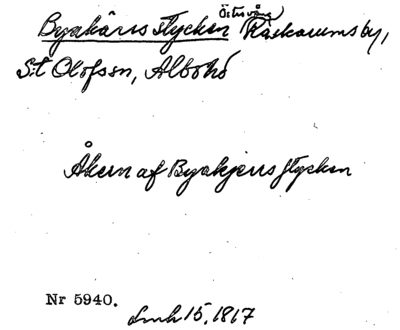 Byakärrs stycken Östervång Raskarums by,
S:t Olofs sn, Albo hd
Åkern af Byakjers stycken
Nr 5940.
Lmh 15, 1817